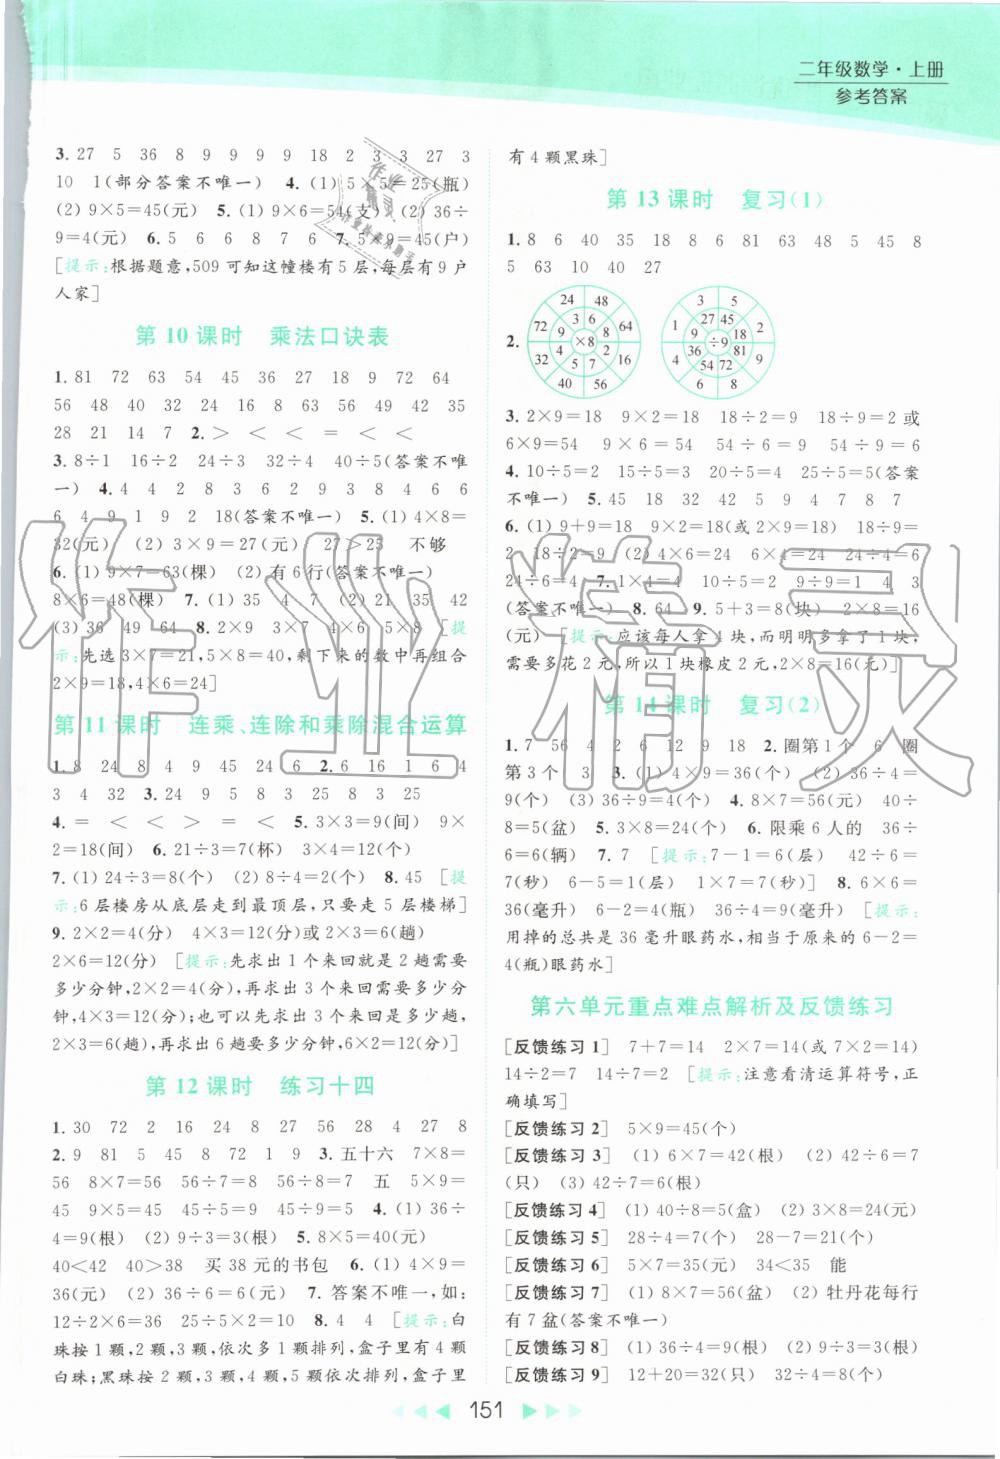 二年级数学·上册
参考答案
3. 27 5 36 8 9 9 9 9 18 2 3 3 27 3
10 1(部分答案不唯一) 4. (1) 5×5=25(瓶)
(2) 9×5=45(元) 5. (1) 9×6=54(支) (2) 36÷
9=4(元) 6. 5 6 8 9 7. 5×9=45(户)
[提示:根据题意,509可知这幢楼有5层,每层有9户
人家]
第10课时 乘法口诀表
1. 81 72 63 54 45 36 27 18 9 72 64
56 48 40 32 24 16 8 63 56 49 42 35
28 21 14 7 2. > < < = < <
3. 8÷1 16÷2 24÷3 32÷4 40÷5(答案不唯
一) 4. 4 4 2 8 3 6 2 9 3 8 4 6 6
6 4 9 1 9 2 18(答案不唯一) 5. (1) 4×8=
32(元) (2) 3×9=27(元) 27>25 不够
6. (1) 9×7=63(棵) (2) 有6行(答案不唯一)
8×6=48(棵) 7. (1) 35 4 7 (2) 21 35 42
(3) 36 49 64 8. 2×9 3×7 4×6 5×8 [提
示:先选3×7=21,5×8=40,剩下来的数中再组合
2×9=18,4×6=24]
第11课时 连乘、连除和乘除混合运算
1. 8 24 8 4 9 45 24 6 2. 6 16 1 6 4
3 4 32 3. 24 9 5 8 3 25 8 3 25
4. = < < > = < 5. 3×3=9(间) 9×
2=18(间) 6. 21÷3=7(杯) 3×4=12(个)
7. (1) 24÷3=8(个) (2) 8÷4=2(个) 8. 45 [提
示:6层楼房从底层走到最顶层,只要走5层楼梯]
9. 2×2=4(分) 4×3=12(分)或2×3=6(趟)
2×6=12(分) [提示:先求出1个来回就是2趟需要
多少分钟,2×2=4(分),再求出3个来回需要多少分
钟,4×3=12(分);也可以先求出3个来回是多少趟,
2×3=6(趟),再求出6趟需要多少分钟,2×6=12(分)]
第12课时 练习十四
1. 30 72 2 16 24 8 27 56 28 4 27 8
2. 9 81 5 45 8 72 1 9 3. 五十六 7×8=
56 8×7=56 56÷7=8 56÷8=7 五 5×9=
45 9×5=45 45÷5=9 45÷9=5 4. (1) 36÷
4=9(根) (2) 9÷3=3(根) 5. 8×5=40(元)
40<42 40>38 买38元的书包 6. (1) 4×9=
36(元) (2) 36÷6=6(元) 7. 答案不唯一,如:
12÷2×6=36 25÷5×4=20 8. 4 4 [提示:白
珠按1颗,2颗,3颗,依次多1颗排列,盒子里有4颗
白珠;黑珠按2颗,3颗,依次多1颗排列,盒子里
有4颗黑珠]
第13课时 复习(1)
1. 8 6 40 35 18 8 6 81 63 48 5 45 8
5 63 10 40 27
2. 24 48 64 16 56 40 32 72 3 6 8 2 7 5 4 9 ×8
3 5 2 9 8 6 4 1 27 45 18 81 72 54 36 9 ÷9
3. 2×9=18 9×2=18 18÷2=9 18÷9=2或
6×9=54 9×6=54 54÷6=9 54÷9=6
4. 10÷5=2 15÷5=3 20÷5=4 25÷5=5(答案
不唯一) 5. 45 18 32 42 5 9 4 7 8 7
6. (1) 9+9=18 9×2=18(或2×9=18) 18÷9=
2 18÷2=9 (2) 4×6=24 6×4=24 24÷4=6
24÷6=4 7. 1×4=4 10÷5=2 9÷9=1 4 3
(答案不唯一) 8. 64 9. 5+3=8(块) 2×8=16
(元) [提示:应该每人拿4块,而明明多拿了1块,
需要多花2元,所以1块橡皮2元,2×8=16(元)]
第14课时 复习(2)
1. 7 56 4 2 36 2 12 9 18 2. 圈第1个 6 圈
第3个 3 3. (1) 4×9=36(个) (2) 36÷4=
9(个) (3) 36÷9=4(个) 4. 8×7=56(元) 40÷
8=5(盆) 5. 3×8=24(个) 6. 限乘6人的 36÷
6=6(辆) 7. 7 [提示:7-1=6(层) 42÷6=
7(秒) 6-5=1(层) 1×7=7(秒)] 8. 6×6=
36(毫升) 6-2=4(瓶) 36÷4=9(毫升) [提示:
用掉的总共是36毫升眼药水,相当于原来的6-2=
4(瓶)眼药水]
第六单元重点难点解析及反馈练习
[反馈练习1] 7+7=14 2×7=14(或7×2=14)
14÷2=7 14÷7=2 [提示:注意看清运算符号,正
确填写]
[反馈练习2] 5×9=45(个)
[反馈练习3] (1) 6×7=42(根) (2) 42÷6=7
(只) (3) 42÷7=6(根)
[反馈练习4] (1) 40÷8=5(盒) (2) 3×8=24(元)
[反馈练习5] 28÷4=7(个) 28-7=21(个)
[反馈练习6] 5×7=35(元) 34<35 能
[反馈练习7] (1) 8×7=56(盆) (2) 牡丹花每行
有7盆(答案不唯一)
[反馈练习8] (1) 36÷9=4(个) (2) 36÷4=9(个)
[反馈练习9] 12+20=32(只) 32÷4=8(个)
151
作业精灵